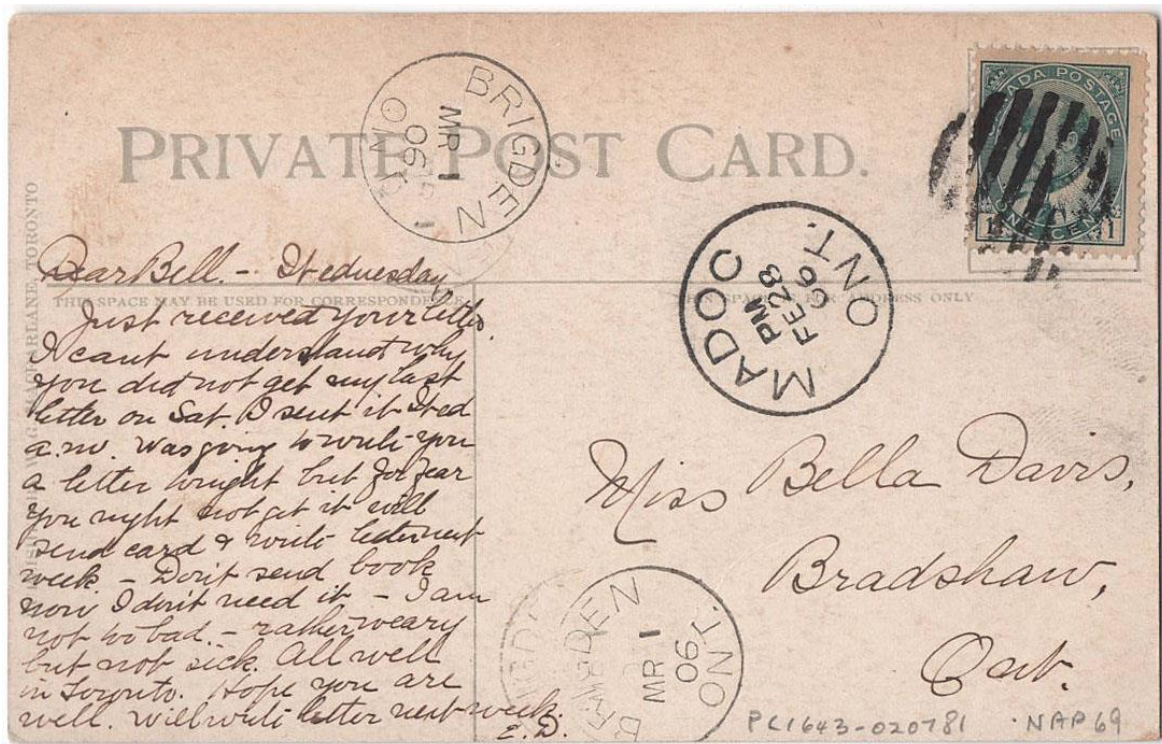 PRIVATE POST CARD.
BRIGDEN
ONT
MR 1
06
CANADA POSTAGE
ONE CENT
1 1
MADOC
ONT.
PM
FE 28
06
THIS SPACE MAY BE USED FOR CORRESPONDENCE
THIS SPACE IS FOR ADDRESS ONLY
MACFARLANE, TORONTO
Dear Bell. - Wednesday
Just received your letter.
I cant understand why
you did not get my last
letter on Sat. I sent it Wed
a.m. Was going to write you
a letter tonight but for fear
you might not get it will
send card & write letter next
week. - Don't send book
now I don't need it - I am
not too bad. - rather weary
but not sick. All well
in Toronto. Hope you are
well. Will write letter next week.
E.D.
Miss Bella Davis,
Bradshaw,
Ont.
BRIGDEN
ONT.
MR 1
06
PC1643-020781 NAP69